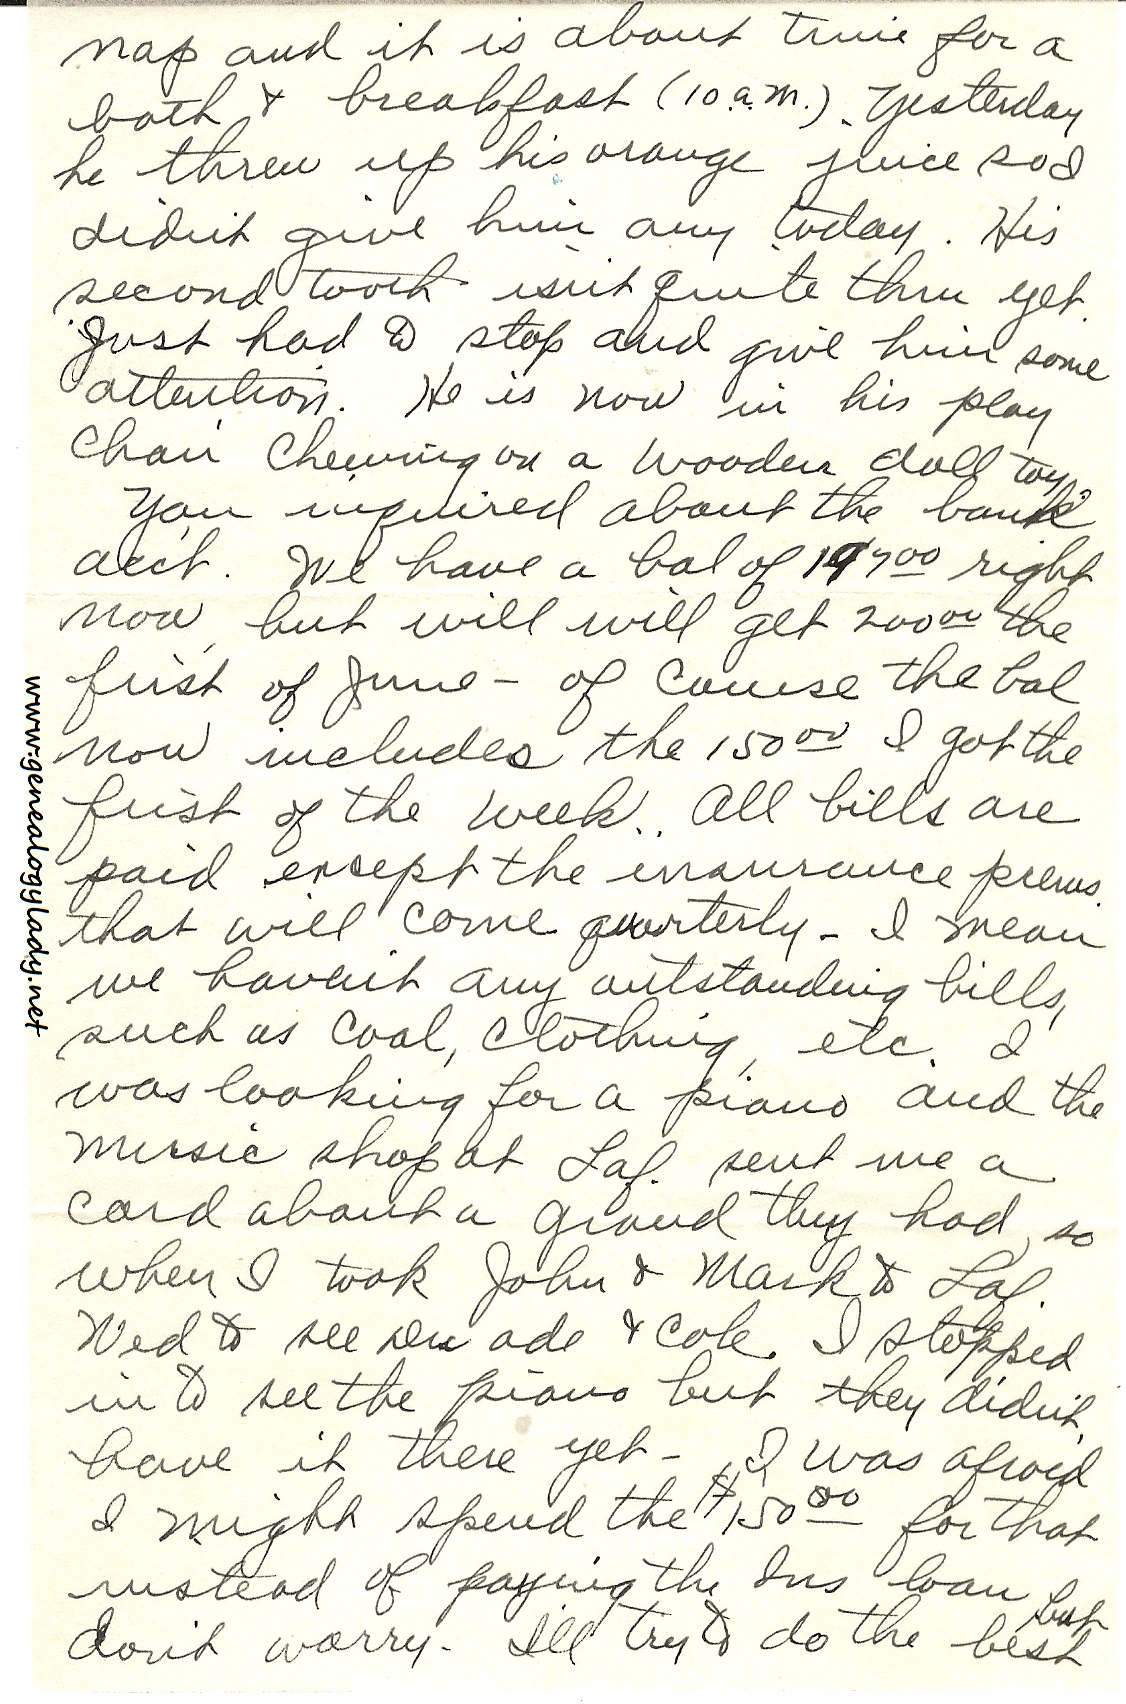 nap and it is about time for a
bath & breakfast (10 a.m.). Yesterday
he threw up his orange juice so I
didn't give him any today. His
second tooth isn't quite thru yet.
Just had to stop and give him some
attention. He is now in his play
chair chewing on a wooden doll toy.
You inquired about the bank
acc't. We have a bal of 197 00 right
now, but will will get 200 00 the
first of June - of course the bal
now includes the 150 00 I got the
first of the week. All bills are
paid except the insurance prems.
that will come quarterly - I mean
we haven't any outstanding bills,
such as coal, clothing, etc. I
was looking for a piano and the
music shop at Laf. sent me a
card about a grand they had, so
when I took John & Mark to Laf.
Wed to see Drs Ade & Cole. I stopped
in to see the piano but they didn't
have it there yet - I was afraid
I might spend the $150 00 for that
instead of paying the Ins loan but
don't worry - I'll try to do the best
www.genealogylady.net